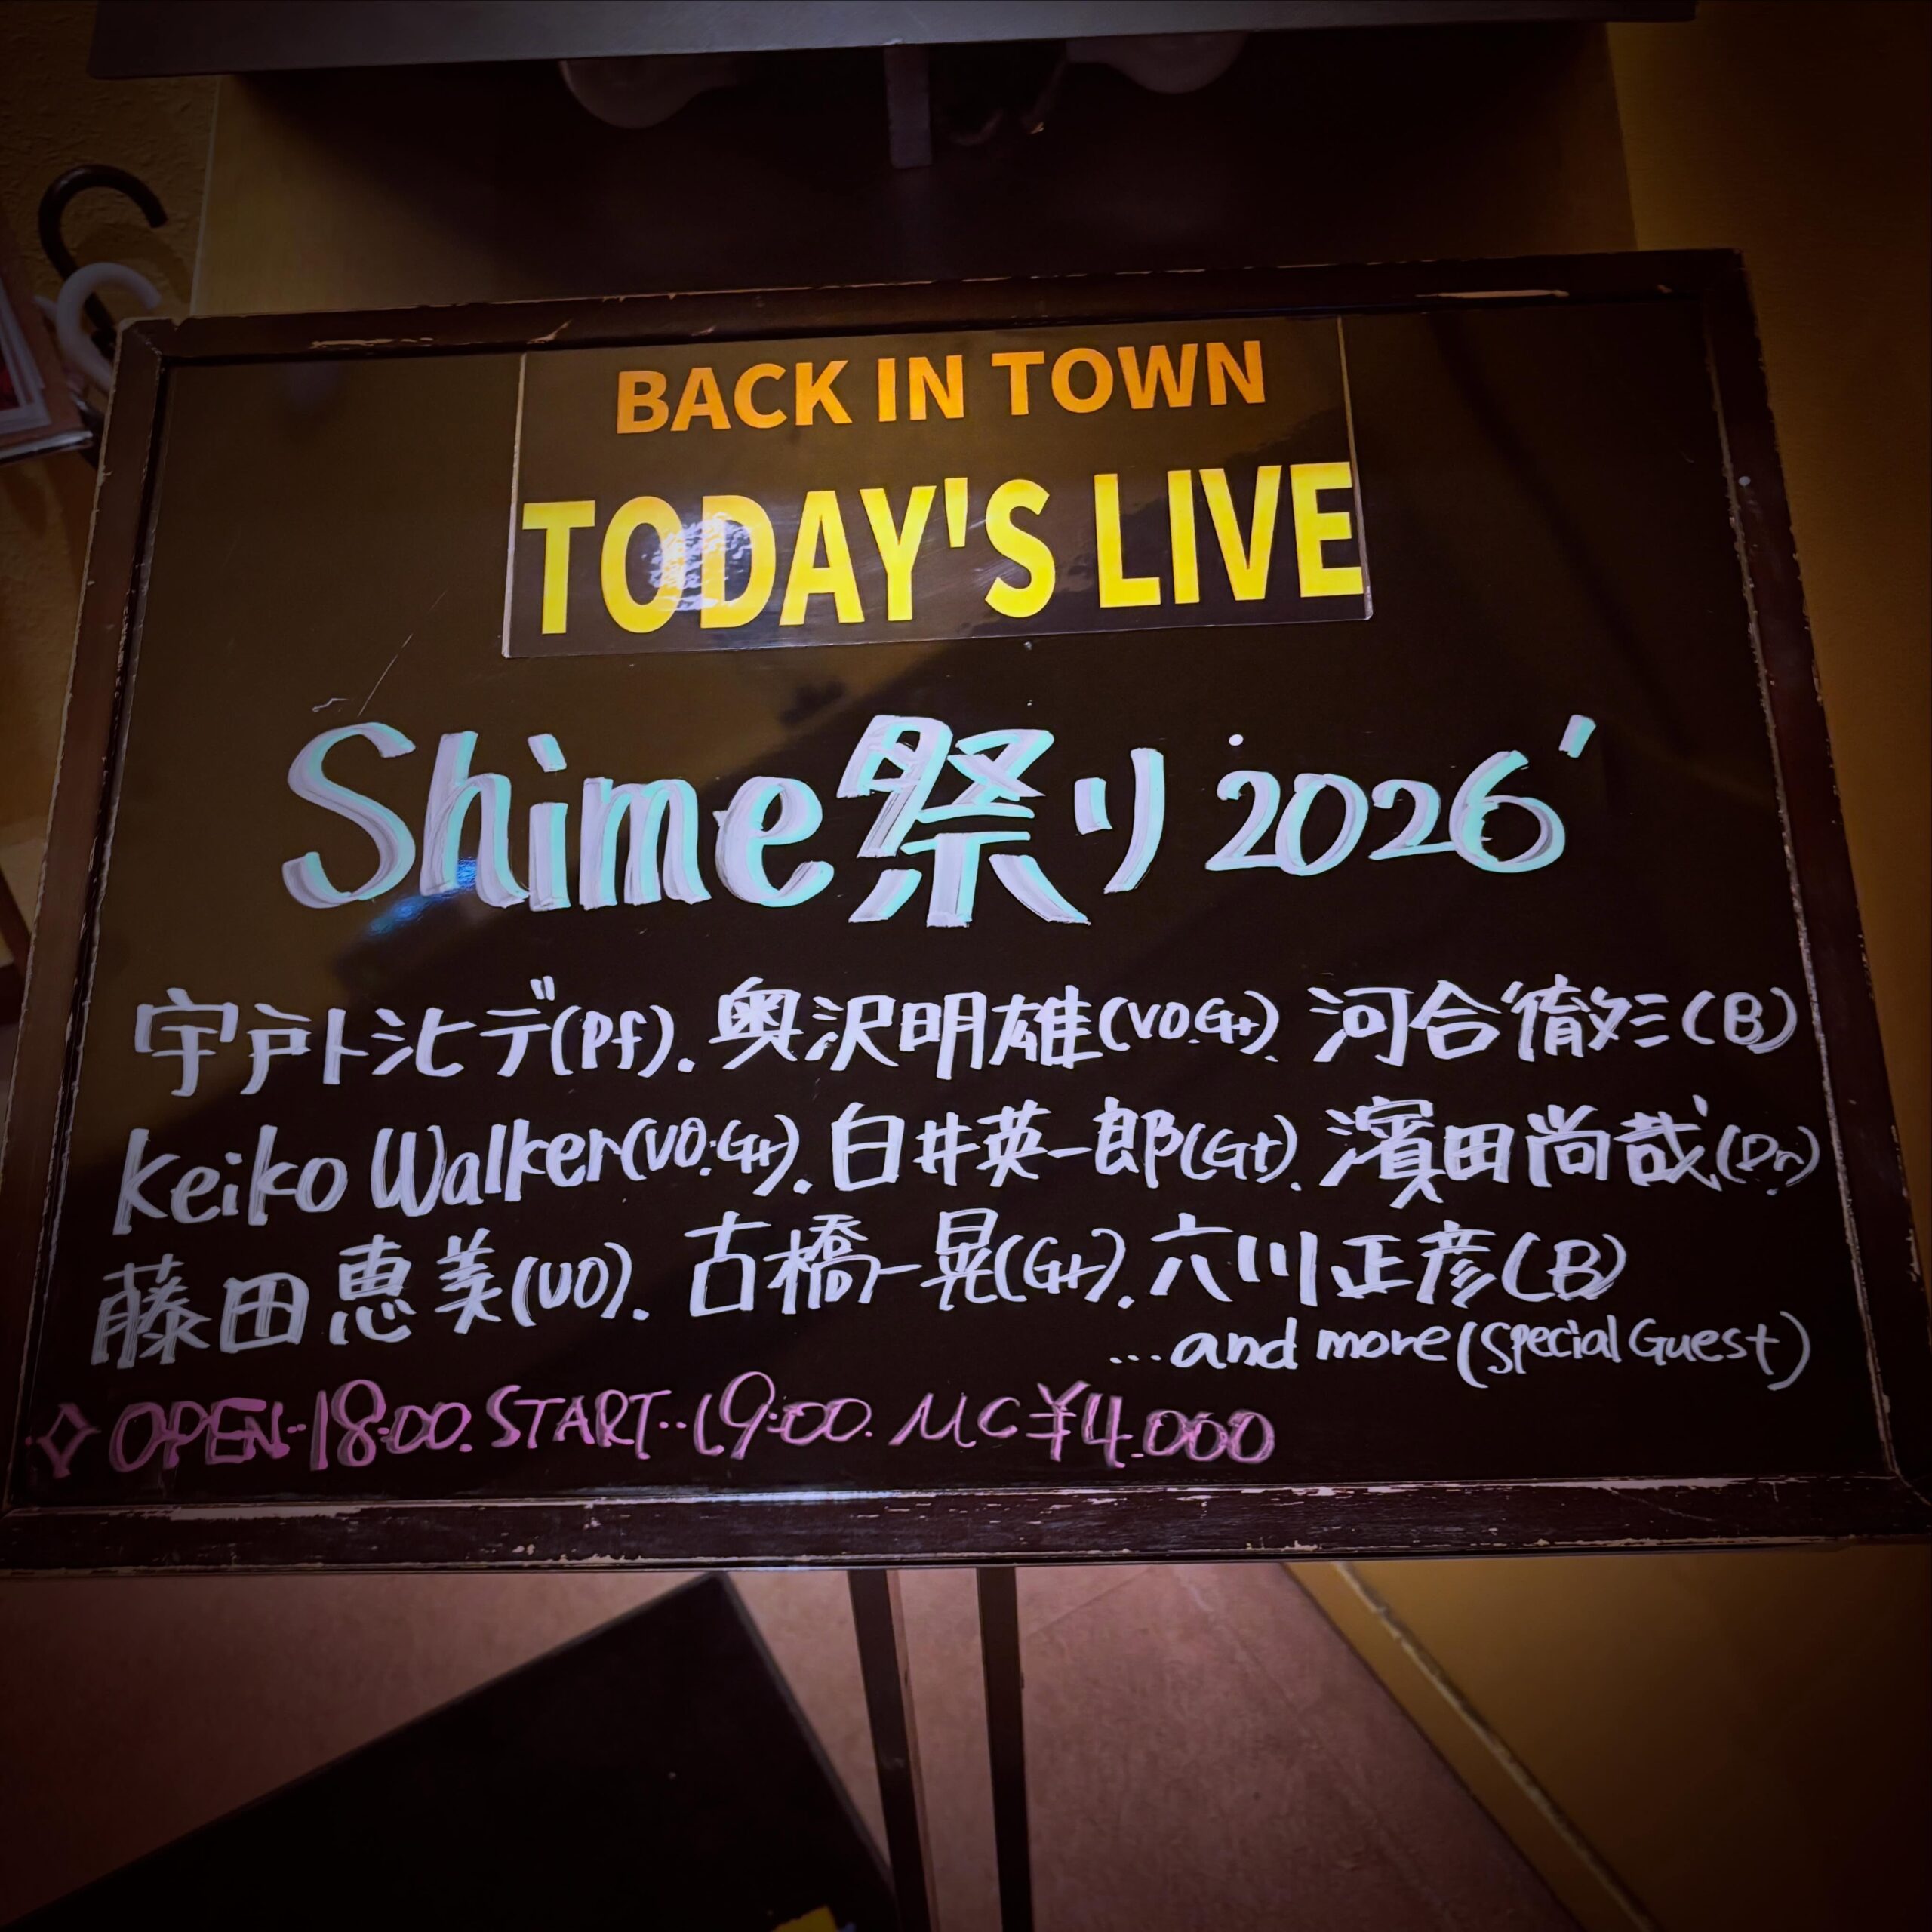 BACK IN TOWN
TODAY'S LIVE
Shime祭り2026'
宇戸トシヒデ(Pf). 奥沢明雄(VO.Gt). 河合徹三(B)
Keiko Walker(VO.Gt). 白井英一郎(Gt). 濱田尚哉(Dr)
藤田恵美(VO). 古橋一晃(Gt). 六川正彦(B)
...and more(Special Guest)
◇OPEN・18:00. START・・19:00. MC ¥4.000